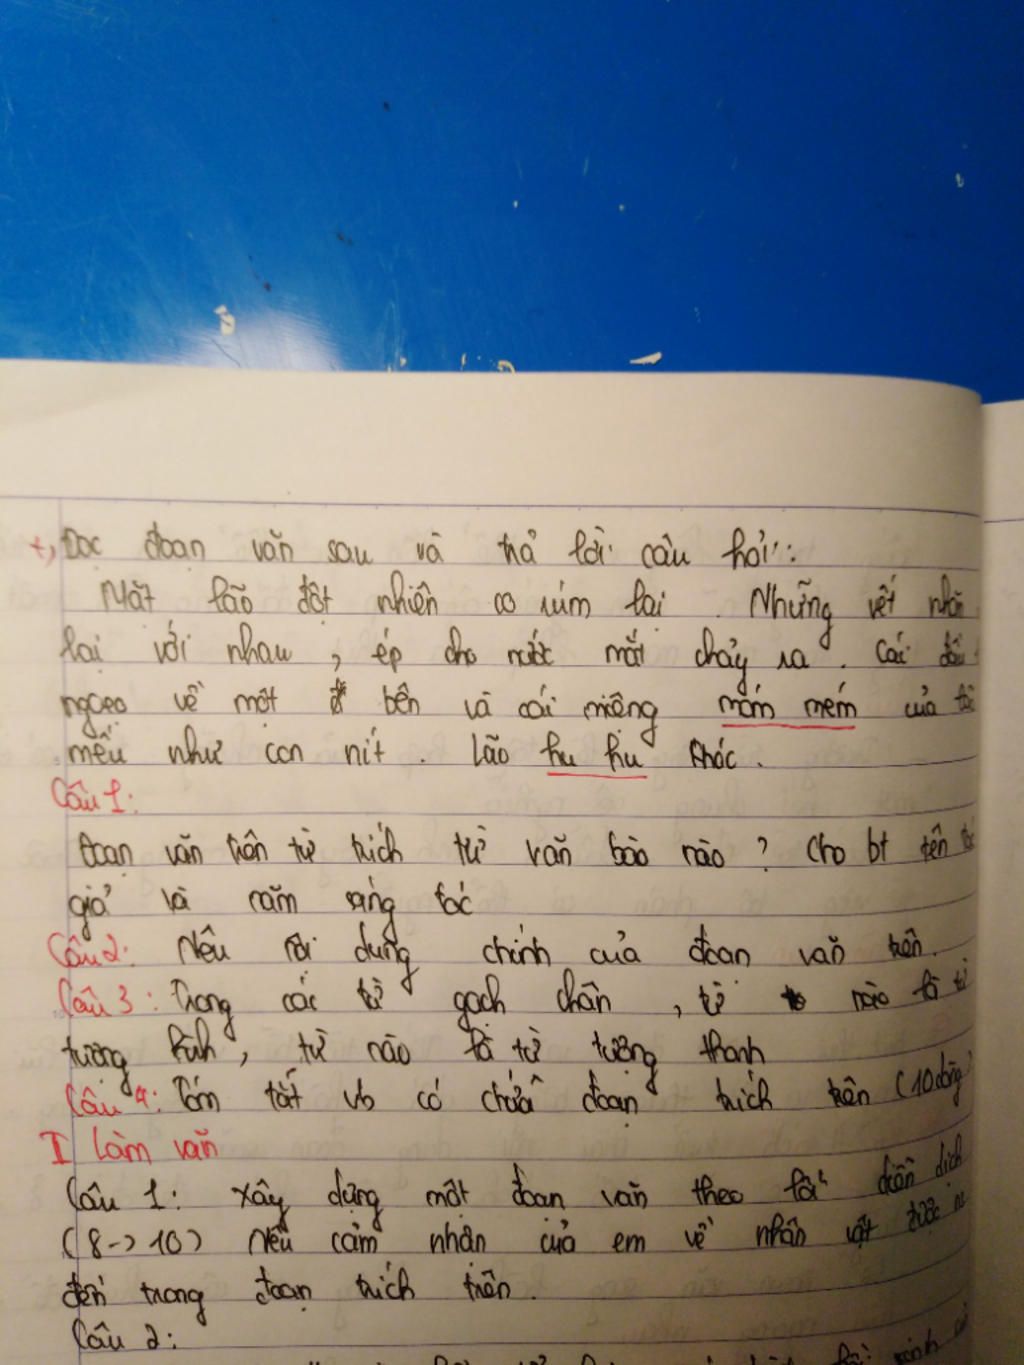 +, Đọc đoạn văn sau và trả lời câu hỏi:
Mặt lão đột nhiên co rúm lại. Những vết nhăn
lại với nhau, ép cho nước mắt chảy ra. Cái đầu
ngoẹo về một bên và cái miệng móm mém của
mếu như con nít. Lão hu hu khóc.
Câu 1:
Đoạn văn trên từ trích từ văn bản nào? Cho bt tên tác
giả và năm sáng tác
Câu 2: Nêu nội dung chính của đoạn văn trên.
Câu 3: Trong các từ gạch chân, từ nào là từ
tượng hình, từ nào là từ tượng thanh
Câu 4: Tóm tắt vb có chứa đoạn trích trên (10 dòng
I Làm văn
Câu 1: Xây dựng một đoạn văn theo lối diễn dịch
(8->10) Nêu cảm nhận của em về nhân vật được
đến trong đoạn trích trên.
Câu 2: